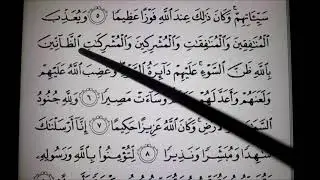 سَيِّـَٔاتِهِمْ ۚ وَكَانَ ذَٰلِكَ عِندَ ٱللَّهِ فَوْزًا عَظِيمًا ٥ وَيُعَذِّبَ
ٱلْمُنَٰفِقِينَ وَٱلْمُنَٰفِقَٰتِ وَٱلْمُشْرِكِينَ وَٱلْمُشْرِكَٰتِ ٱلظَّآنِّينَ
بِٱللَّهِ ظَنَّ ٱلسَّوْءِ ۚ عَلَيْهِمْ دَآئِرَةُ ٱلسَّوْءِ ۖ وَغَضِبَ ٱللَّهُ عَلَيْهِمْ
وَلَعَنَهُمْ وَأَعَدَّ لَهُمْ وَسَآءَتْ مَصِيرًا ٦ وَلِلَّهِ جُنُودُ
وَٱلْأَرْضِ ۚ وَكَانَ ٱللَّهُ عَزِيزًا حَكِيمًا ٧ إِنَّآ أَرْسَلْنَٰكَ
شَٰهِدًا وَمُبَشِّرًا وَنَذِيرًا ٨ لِّتُؤْمِنُوا۟ بِٱللَّهِ وَرَسُولِهِۦ